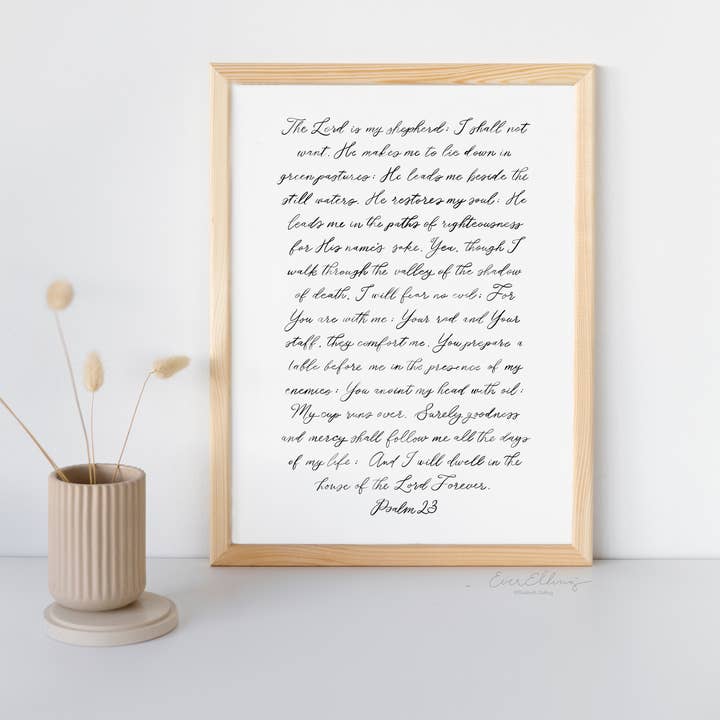 The Lord is my shepherd; I shall not
want. He makes me to lie down in
green pastures; He leads me beside the
still waters. He restores my soul; He
leads me in the paths of righteousness
for His name's sake. Yea, though I
walk through the valley of the shadow
of death, I will fear no evil; For
You are with me; Your rod and Your
staff, they comfort me. You prepare a
table before me in the presence of my
enemies; You anoint my head with oil;
My cup runs over. Surely goodness
and mercy shall follow me all the days
of my life; And I will dwell in the
house of the Lord Forever.
Psalm 23
EverElling